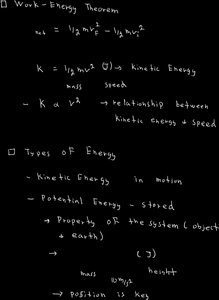 □ Work-Energy Theorem
net = 1/2 mv_f² - 1/2 mv_i²
K = 1/2 mv² (J) → Kinetic Energy
mass speed
- K α v² → relationship between
kinetic energy & speed
□ Types of Energy
- Kinetic Energy in motion
- Potential Energy - stored
→ Property of the system (object
& earth)
→ (J)
mass height
→ position is key